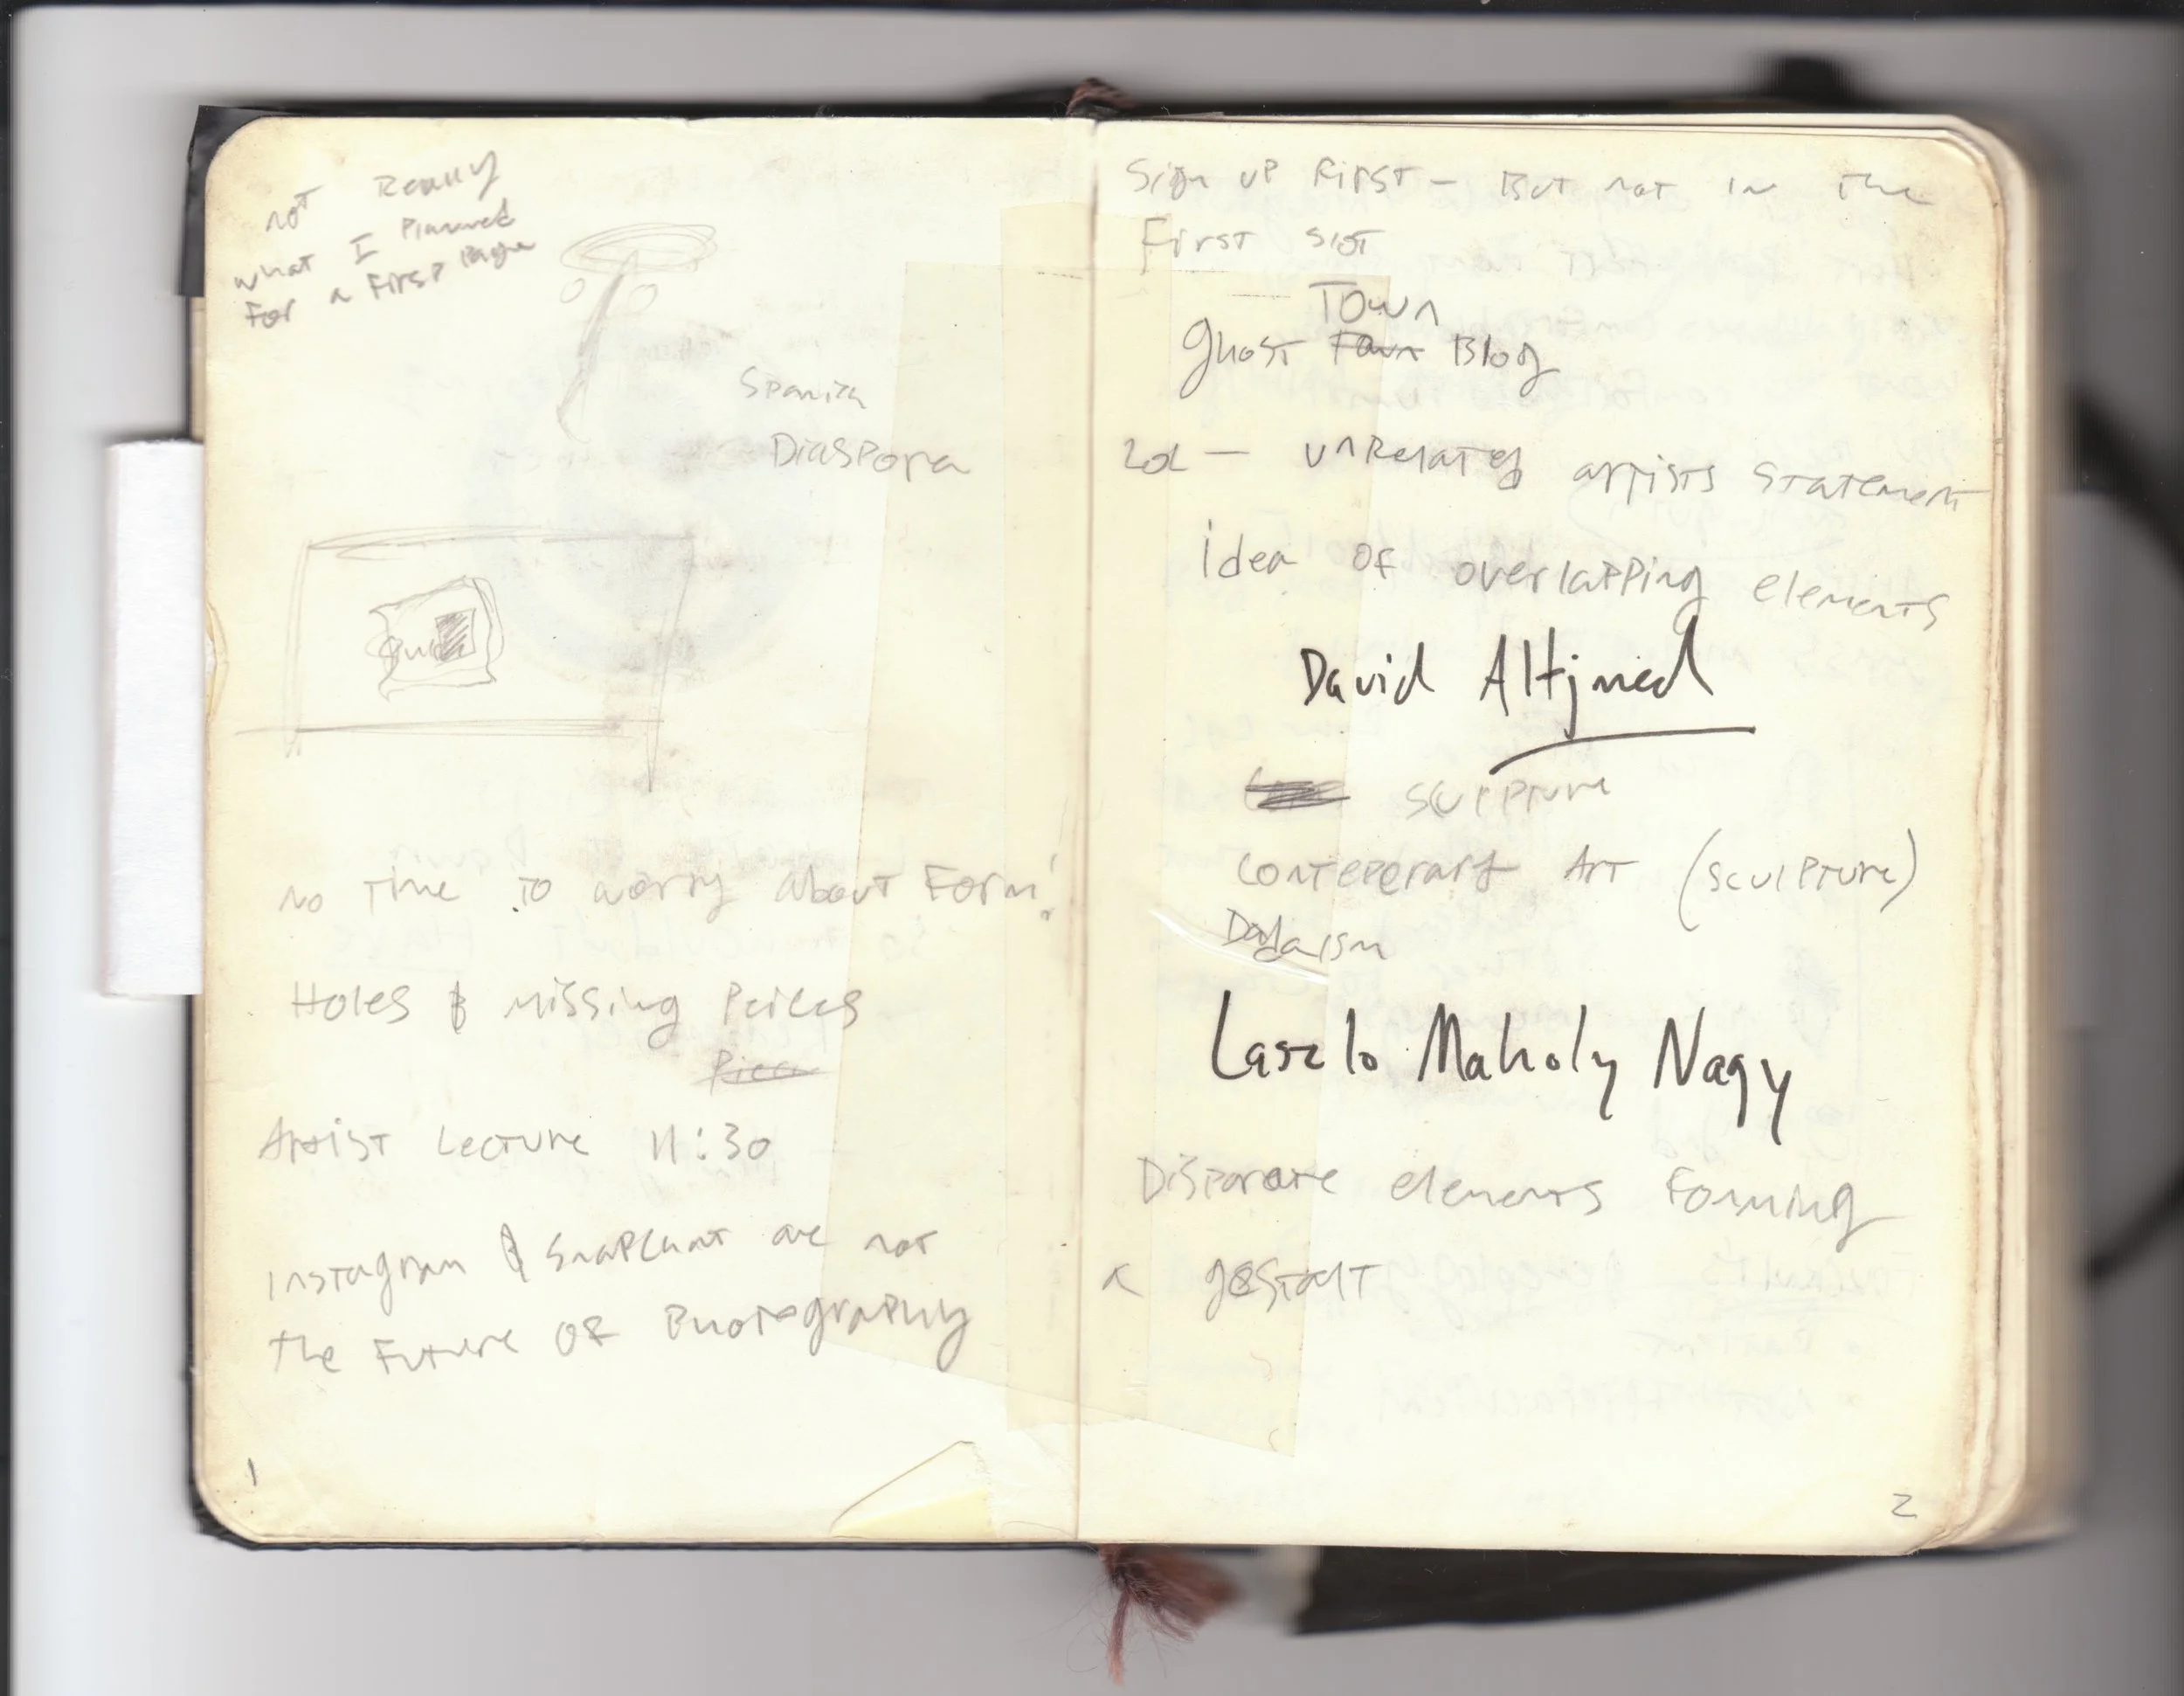 not Really
what I Planned
For a First Page
Spanish
Diaspora
No Time to worry about Form!
Holes & Missing Peices
Artist Lecture 11:30
Instagram & Snapchat are not
the Future OF Photography
1
Sign up First - But not in the
First slot
Town
Ghost Town Blog
2d - unRelated artists statement
idea OF overlapping elements
David Altjmed
sculpture
Conteperary Art (sculpture)
Dadaism
Laszlo Maholy Nagy
Disparate elements Forming
a gestalt
2